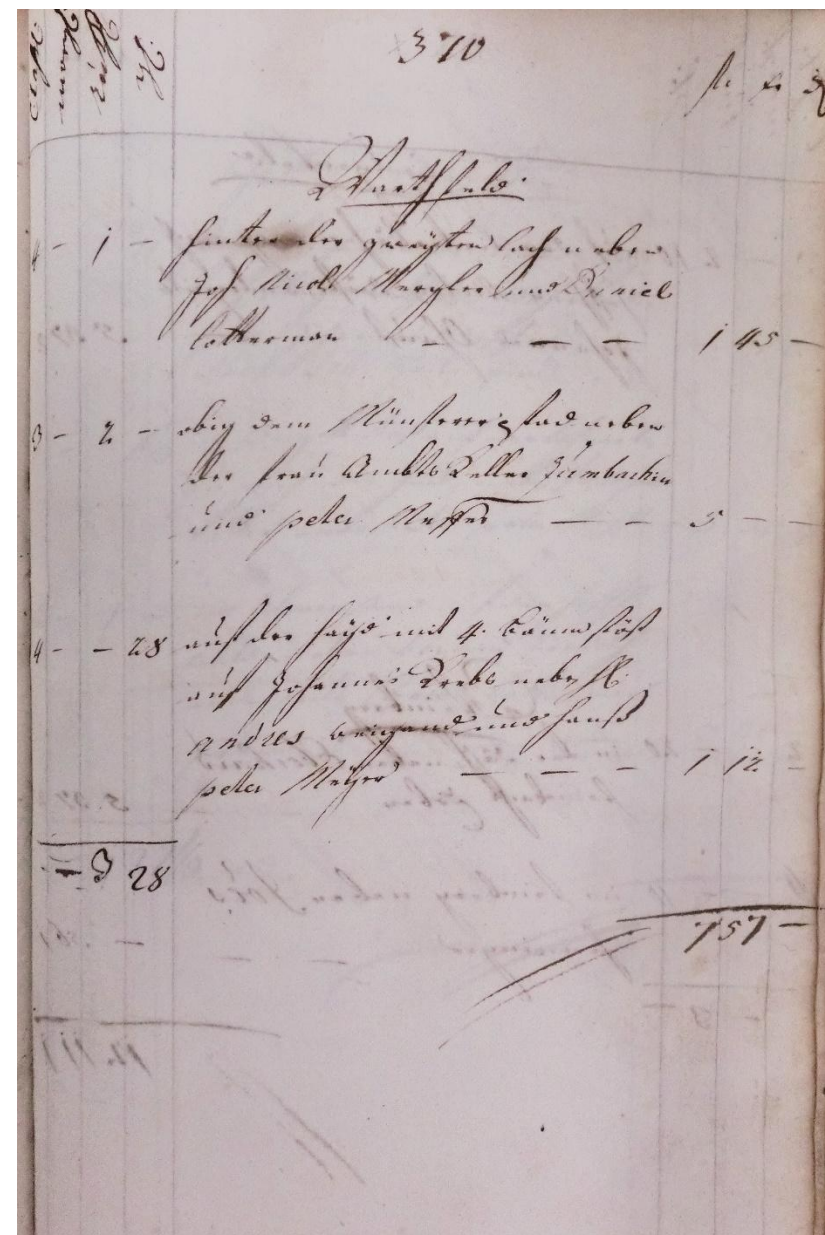 370
fl. xr.
Warthfeld
4 - 1 - hinter der zweyten lach neben
Joh. Nicol Mergler und Daniel
Cotterman - - - 1 45 -
3 - 2 - obig dem Münsterer pfad neben
der frau Ambts Keller
und peter Messer - - 5 - -
4 - - 28 auf der heyd mit 4. bäum stöst
auf Johannes Krebs neben
Andres weigand und hanß
peter Meyer - - - 1 12 -
- 3 28
7 57 -